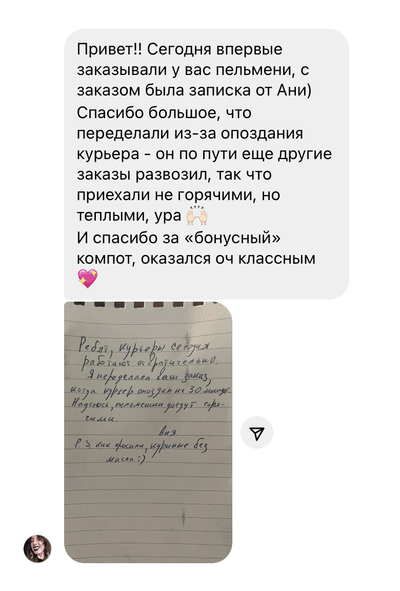 Привет!! Сегодня впервые
заказывали у вас пельмени, с
заказом была записка от Ани)
Спасибо большое, что
переделали из-за опоздания
курьера - он по пути еще другие
заказы развозил, так что
приехали не горячими, но
теплыми, ура 🙌🏻
И спасибо за «бонусный»
компот, оказался оч классным
💖
Ребят, курьеры сегодня
работают отвратительно.
Я переделала ваш заказ,
когда курьер опоздал на 30 минут.
Надеюсь, пельмешки доедут горя-
чими.
Аня
P.S. как просили, куриные без
масла :)